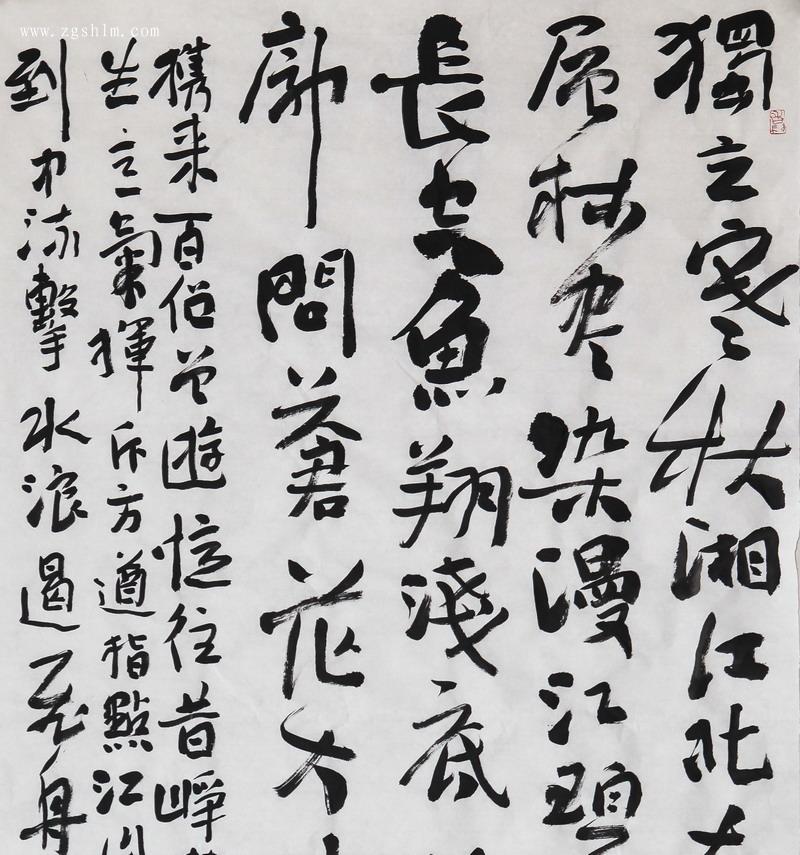 www.zgshlm.com
獨立寒秋湘江北
层林尽染漫江碧
長空魚翔淺底
廓問蒼茫大
携来百侣曾遊憶往昔崢
生意氣揮斥方遒指點江山
到中流擊水浪遏飛舟